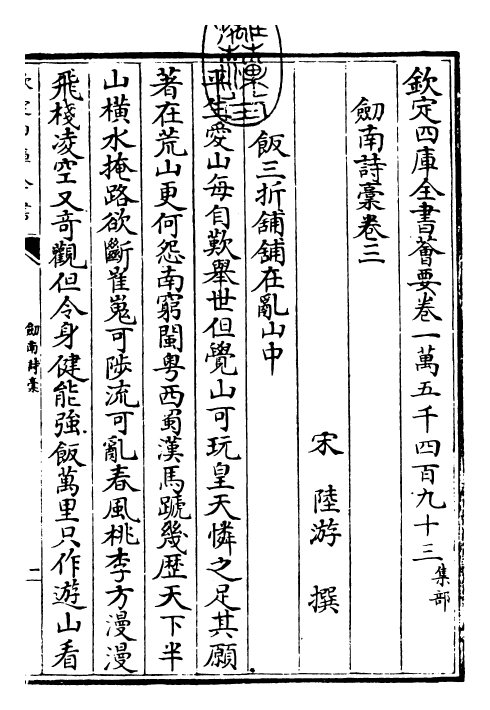 欽定四庫全書薈要卷一萬五千四百九十三集部
劒南詩稾卷三
宋陸游撰
飯三折舖舖在亂山中
平生愛山每自歎舉世但覺山可玩皇天憐之足其願
著在荒山更何怨南窮閩粤西蜀漢馬蹏幾歴天下半
山橫水掩路欲斷崔嵬可陟流可亂春風桃李方漫漫
飛棧凌空又奇觀但令身健能強飯萬里只作遊山看
劒南詩稾